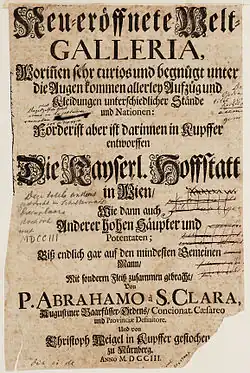 Neu-eröffnete Welt-
GALLERIA,
Woriñen sehr curios und begnügt unter
die Augen kommen allerley Aufzüg und
Kleidungen unterschiedlicher Stände
und Nationen:
Förderist aber ist darinnen in Kupffer
entworffen
Die Kayserl. Hoffstatt
in Wien/
Wie dann auch
Anderer hohen Häupter und
Potentaten;
Biß endlich gar auf den mindesten Gemeinen
Mann/
Mit sonderm Fleiß zusammen gebracht/
Von
P. ABRAHAMO à S. CLARA,
Augustiner Baarfüsser-Ordens/ Concionat. Cæsareo
und Provinciæ Definitore.
Und von
Christoph Weigel in Kupffer gestochen
zu Nürnberg.
ANNO MDCCIII.
MDCCIII